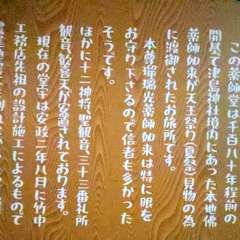 この薬師堂は千百八十年程前の
開基で津島神社境内にあった本地佛
薬師如来が天王祭(夏祭)見物の為
に渡御されたお旅所です。
本尊瑠璃光薬師如来は特に眼を
お守り下さるので信者も多かった
そうです。
ほかに十二神将聖観音、三十三番礼所
観音、歓喜天が安置されております。
現在の堂宇は安政二年八月に竹中
工務店先祖の設計施工によるもので